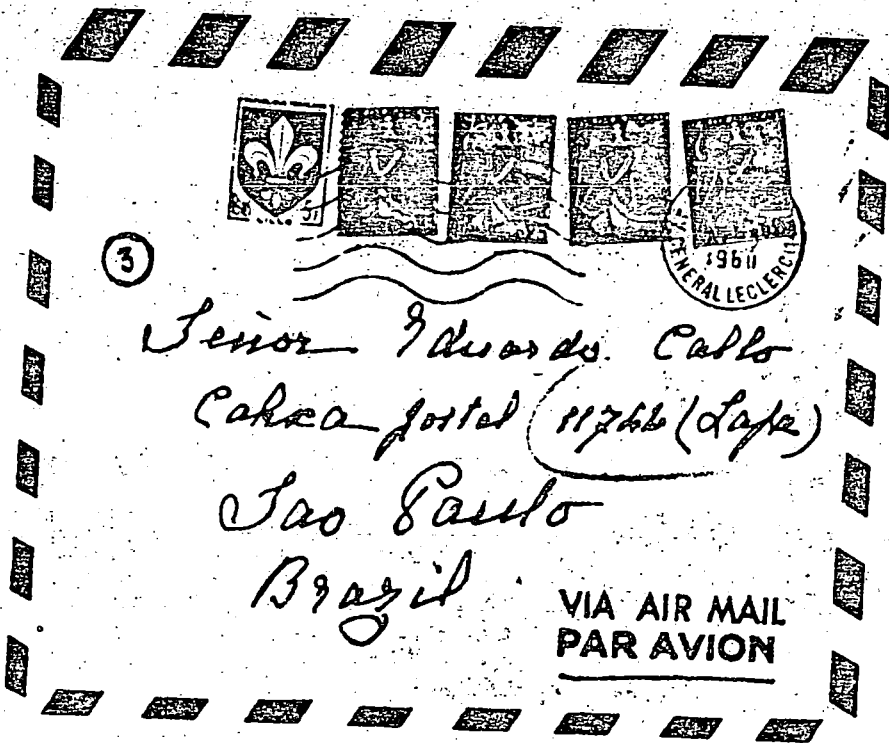 3
1960
GENERAL LECLERC
Señor Eduardo Callo
Caixa postal 11744 (Lapa)
Sao Paulo
Brazil
VIA AIR MAIL
PAR AVION